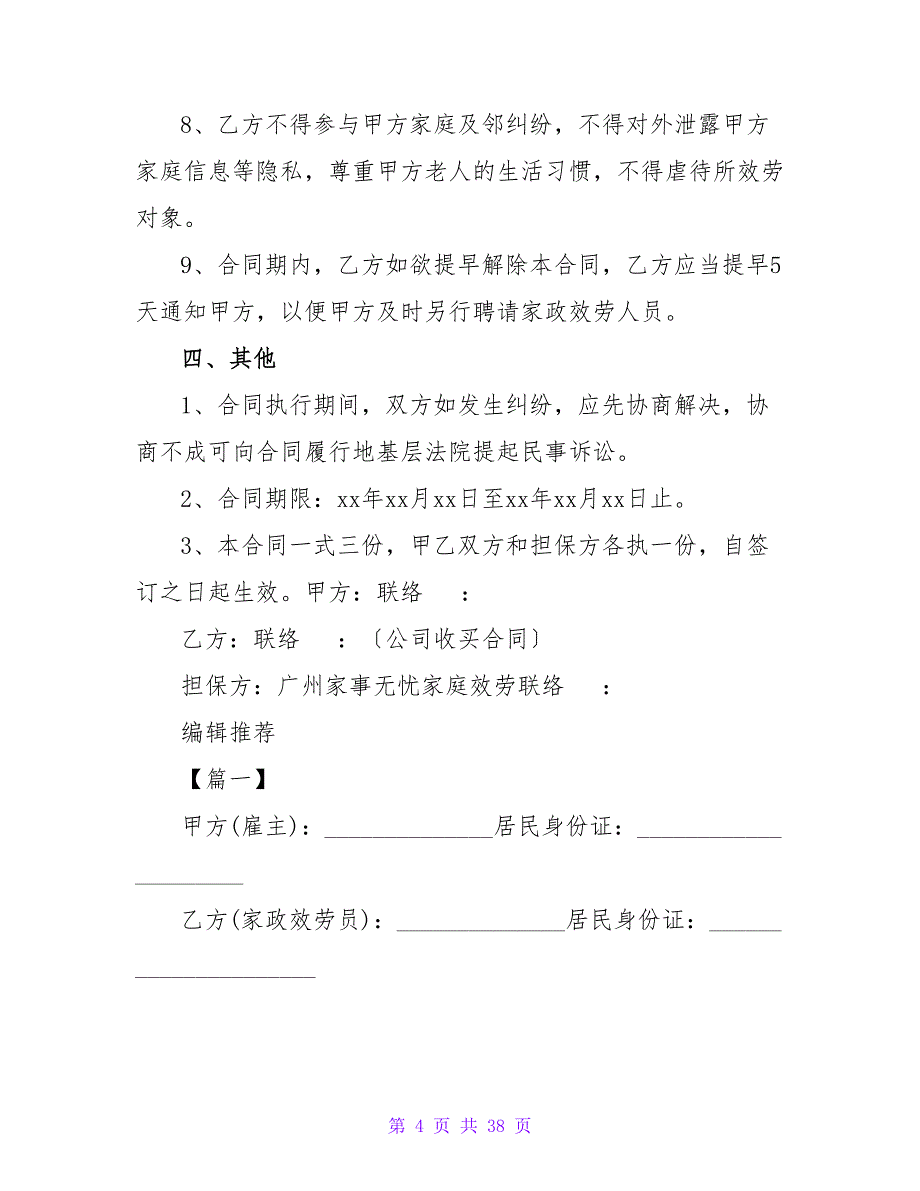 8、乙方不得参与甲方家庭及邻纠纷，不得对外泄露甲方
家庭信息等隐私，尊重甲方老人的生活习惯，不得虐待所效劳
对象。
9、合同期内，乙方如欲提早解除本合同，乙方应当提早5
天通知甲方，以便甲方及时另行聘请家政效劳人员。
四、其他
1、合同执行期间，双方如发生纠纷，应先协商解决，协
商不成可向合同履行地基层法院提起民事诉讼。
2、合同期限：xx年xx月xx日至xx年xx月xx日止。
3、本合同一式三份，甲乙双方和担保方各执一份，自签
订之日起生效。甲方：联络　：
乙方：联络　：〔公司收买合同〕
担保方：广州家事无忧家庭效劳联络　：
编辑推荐
【篇一】
甲方(雇主)：______________居民身份证：____________
_________
乙方(家政效劳员)：______________居民身份证：______
_______________
第 4 页 共 38 页